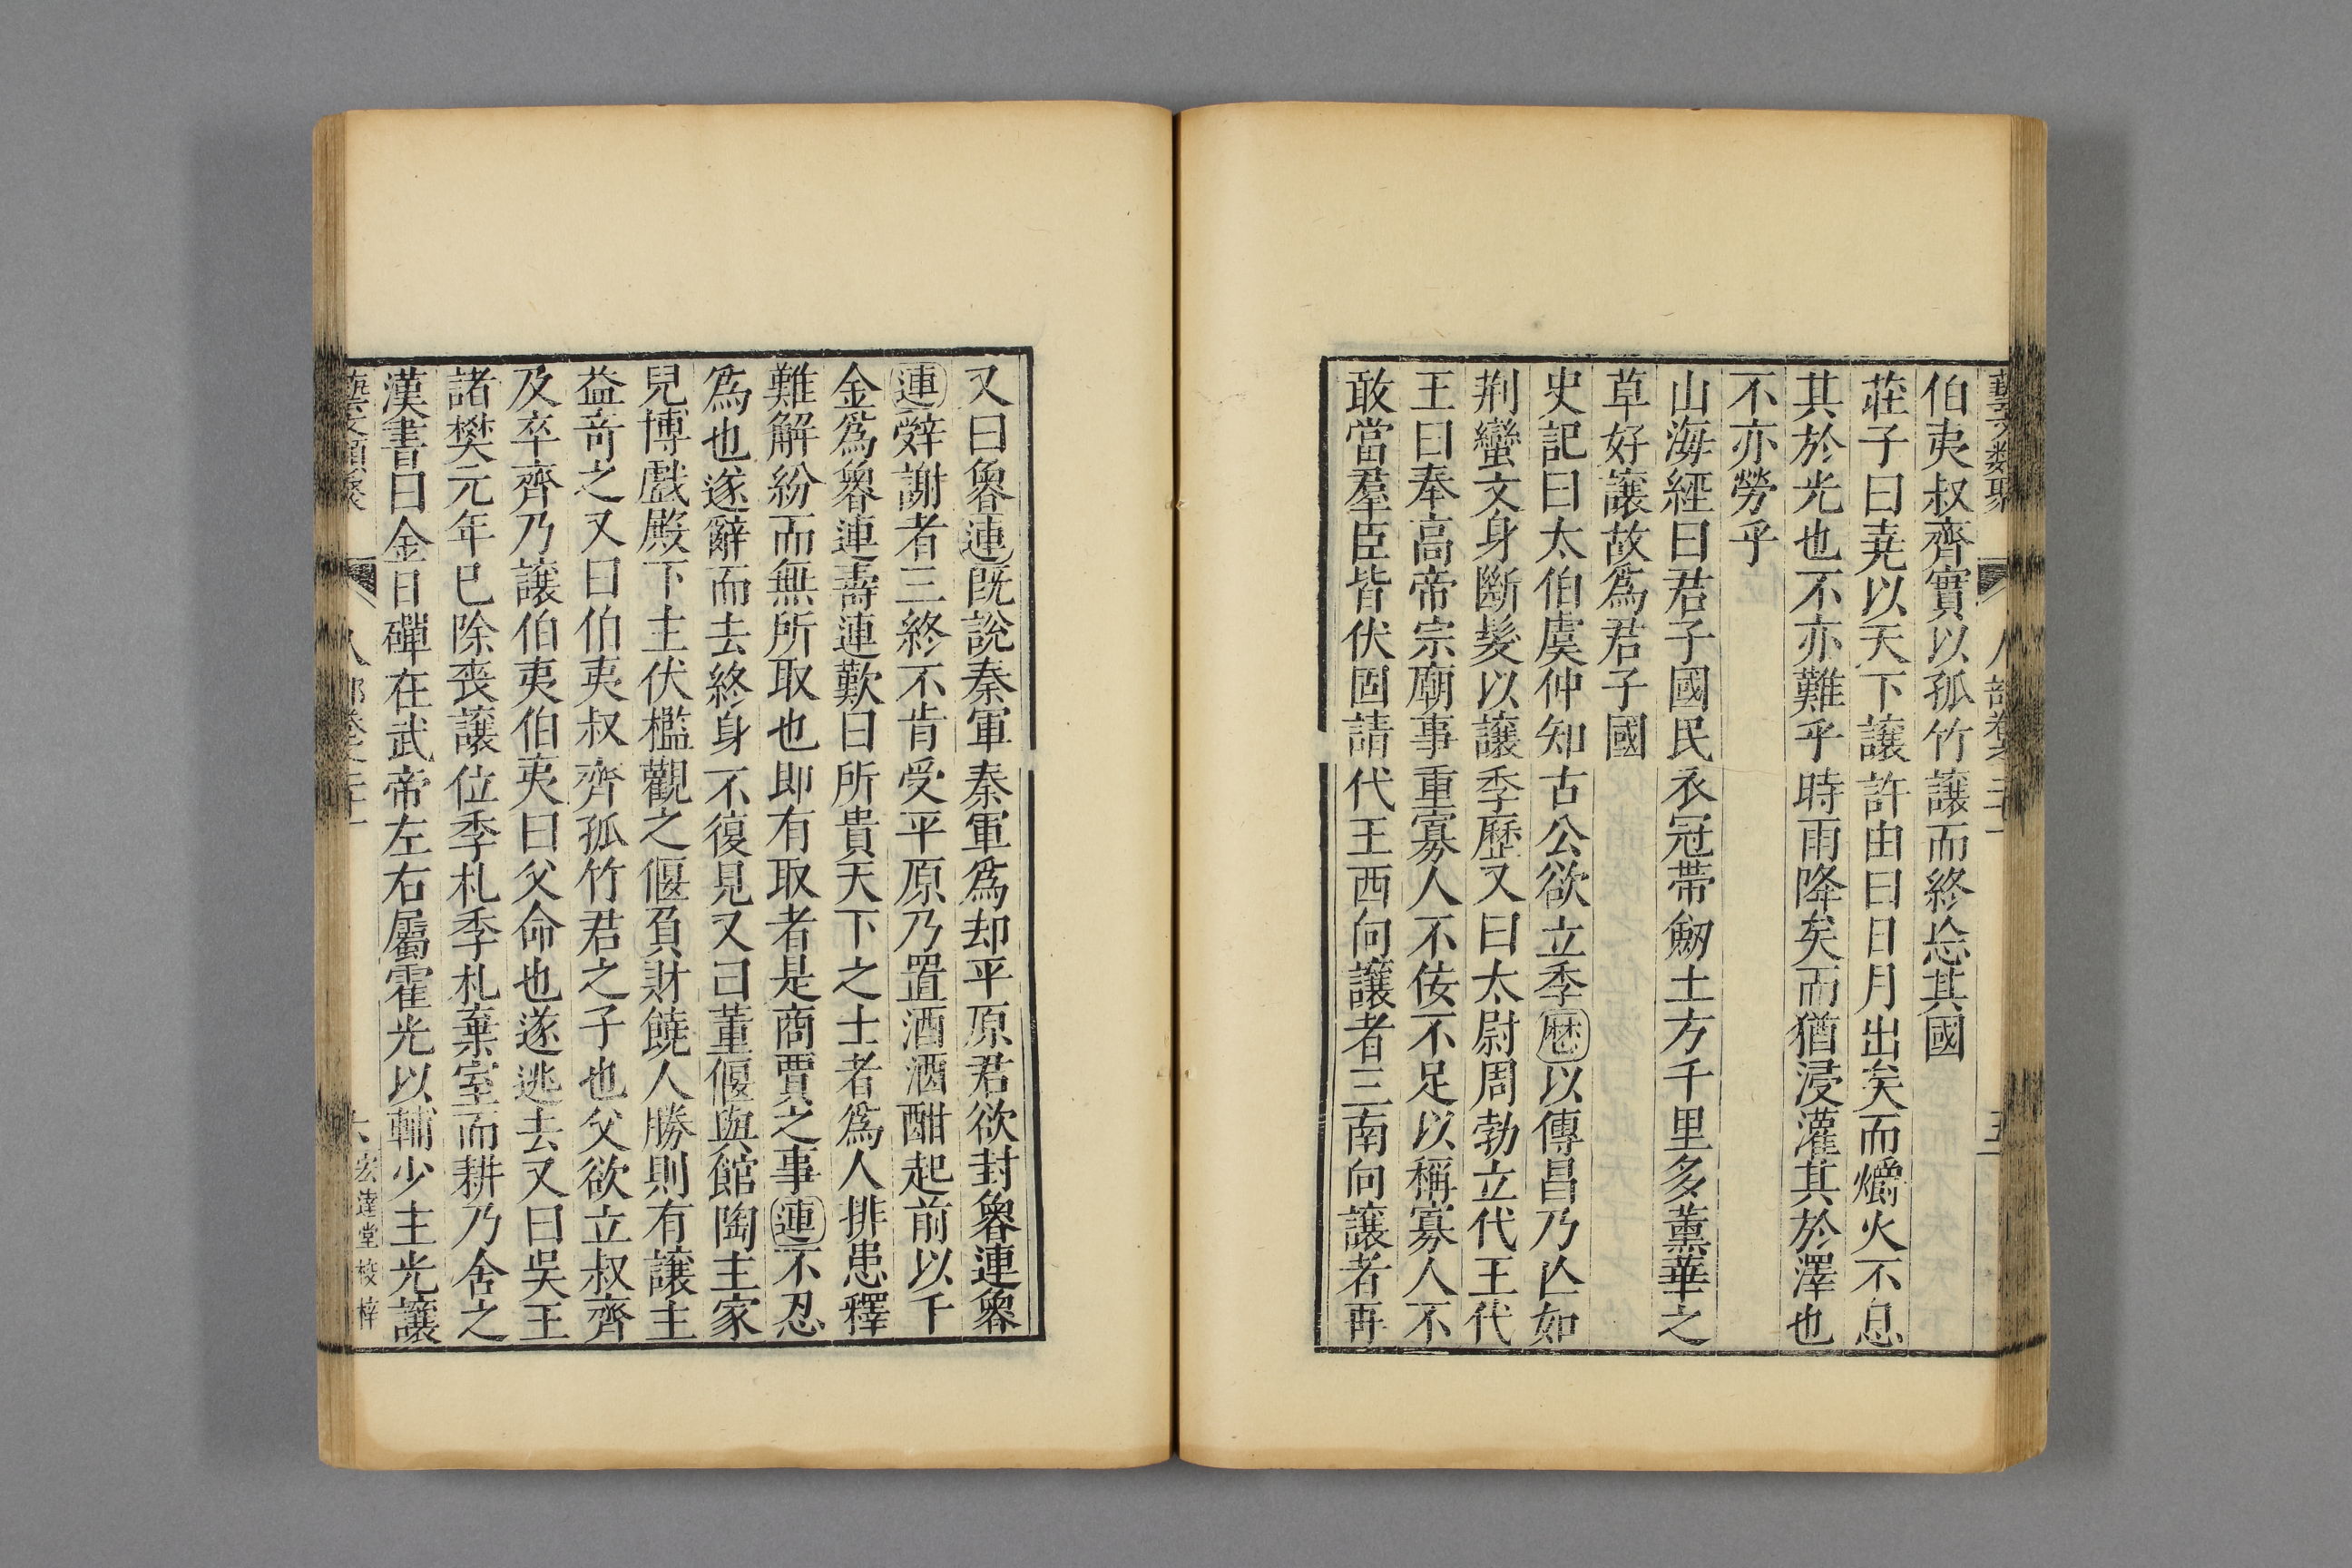 藝文類聚 人部卷之二十一 五
伯夷叔齊實以孤竹讓而終忘其國
莊子曰堯以天下讓許由曰日月出矣而爝火不息
其於光也不亦難乎時雨降矣而猶浸灌其於澤也
不亦勞乎
山海經曰君子國民衣冠帶劒土方千里多薰華之
草好讓故爲君子國
史記曰太伯虞仲知古公欲立季歷以傳昌乃亾如
荆蠻文身斷髮以讓季歷又曰太尉周勃立代王代
王曰奉高帝宗廟事重寡人不佞不足以稱寡人不
敢當羣臣皆伏固請代王西向讓者三南向讓者再
又曰魯連既說秦軍秦軍爲却平原君欲封魯連魯
連辤謝者三終不肯受平原乃置酒酒酣起前以千
金爲魯連壽連歎曰所貴天下之士者爲人排患釋
難解紛而無所取也即有取者是商賈之事連不忍
爲也遂辭而去終身不復見又曰董偃與館陶主家
兒博戲殿下主伏檻觀之偃負財饒人勝則有讓主
益奇之又曰伯夷叔齊孤竹君之子也父欲立叔齊
及卒齊乃讓伯夷伯夷曰父命也遂逃去又曰吳王
諸樊元年已除喪讓位季札季札棄室而耕乃舍之
漢書曰金日磾在武帝左右屬霍光以輔少主光讓
藝文類聚 人部卷之二十一 六 宏達堂校梓